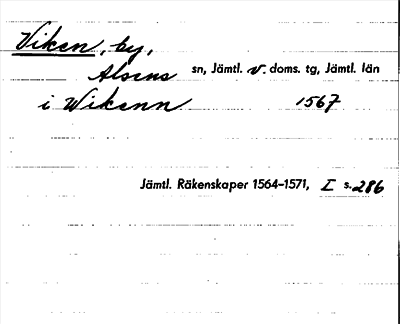 Viken, by,
Alsens sn, Jämtl. v. doms. tg, Jämtl. län
i Wikenn 1567
Jämtl. Räkenskaper 1564-1571, I s. 286